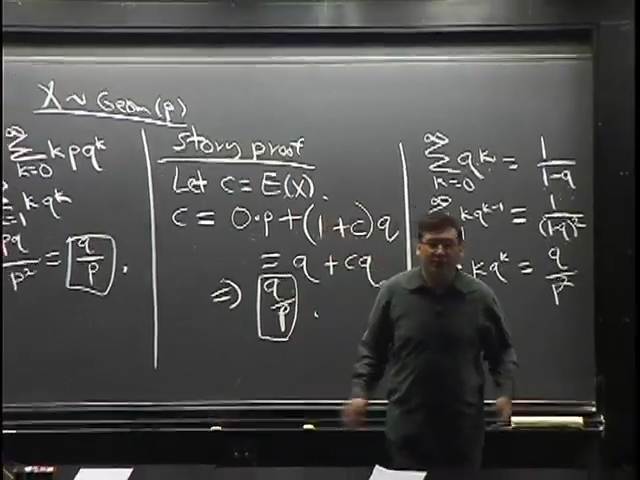 X ~ Geom(p)
∞
∑ k p q^k
k=0
k q^k
pq/p² = q/p .
Story proof
Let c = E(X).
c = 0·p + (1+c)q
= q + cq
⇒ q/p .
∞
∑ q^k = 1/(1-q)
k=0
∞
k q^(k-1) = 1/(1-q)²
k q^k = q/p²